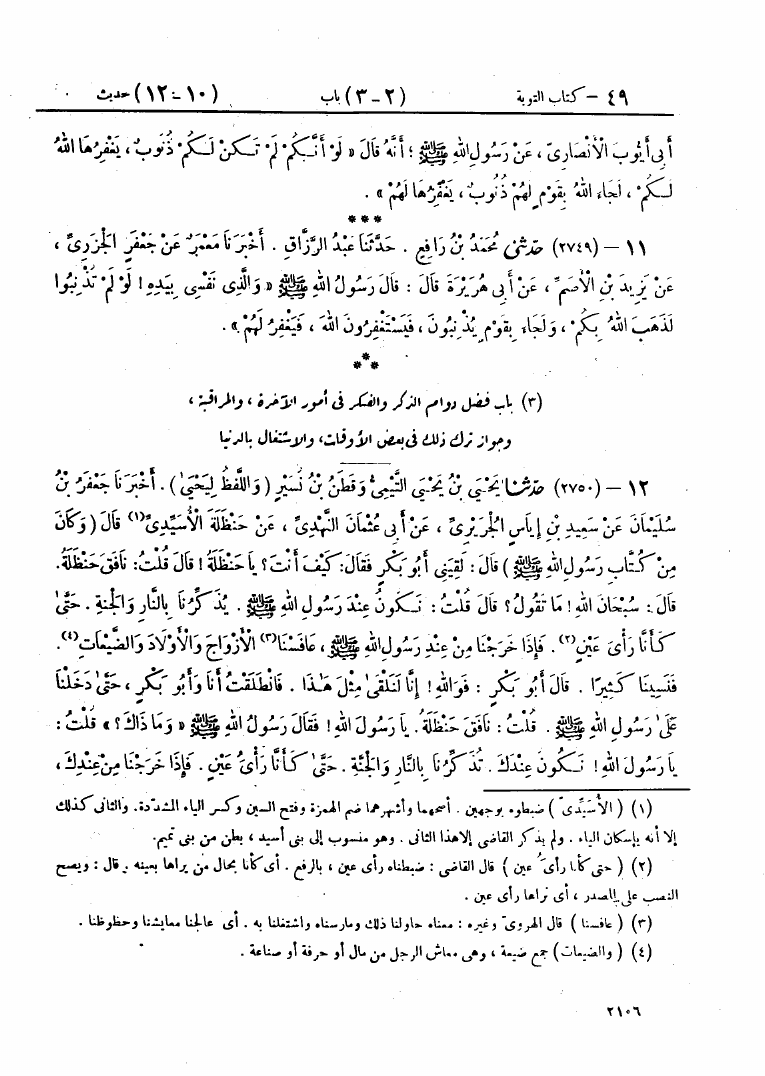 ٤٩ – كتاب التوبة (٢ – ٣) باب (١٠ – ١٢) حديث
أَبِي أَيُّوبَ الْأَنْصَارِيِّ ، عَنْ رَسُولِ اللهِ ﷺ ؛ أَنَّهُ قَالَ « لَوْ أَنَّكُمْ لَمْ تَكُنْ لَكُمْ ذُنُوبٌ ، يَغْفِرُهَا اللهُ
لَكُمْ ، لَجَاءَ اللهُ بِقَوْمٍ لَهُمْ ذُنُوبٌ ، يَغْفِرُهَا لَهُمْ » .
***
١١ – (٢٧٤٩) حَدَّثَنِي مُحَمَّدُ بْنُ رَافِعٍ . حَدَّثَنَا عَبْدُ الرَّزَّاقِ . أَخْبَرَنَا مَعْمَرٌ عَنْ جَعْفَرٍ الْجَزَرِيِّ ،
عَنْ يَزِيدَ بْنِ الْأَصَمِّ ، عَنْ أَبِي هُرَيْرَةَ قَالَ : قَالَ رَسُولُ اللهِ ﷺ « وَالَّذِي نَفْسِي بِيَدِهِ ! لَوْ لَمْ تُذْنِبُوا
لَذَهَبَ اللهُ بِكُمْ ، وَلَجَاءَ بِقَوْمٍ يُذْنِبُونَ ، فَيَسْتَغْفِرُونَ اللهَ ، فَيَغْفِرُ لَهُمْ » .
***
(٣) باب فضل دوام الذكر والفكر في أمور الآخرة ، والمراقبة ،
وجواز ترك ذلك في بعض الأوقات، والاشتغال بالدنيا
١٢ – (٢٧٥٠) حَدَّثَنَا يَحْيَى بْنُ يَحْيَى التَّيْمِيُّ وَقَطَنُ بْنُ نُسَيْرٍ ( وَاللَّفْظُ لِيَحْيَىٰ ) . أَخْبَرَنَا جَعْفَرُ بْنُ
سُلَيْمَانَ عَنْ سَعِيدِ بْنِ إِيَاسٍ الْجُرَيْرِيِّ ، عَنْ أَبِي عُثْمَانَ النَّهْدِيِّ ، عَنْ حَنْظَلَةَ الْأُسَيِّدِيِّ(١) قَالَ ( وَكَانَ
مِنْ كُتَّابِ رَسُولِ اللهِ ﷺ ) قَالَ : لَقِيَنِي أَبُو بَكْرٍ فَقَالَ : كَيْفَ أَنْتَ ؟ يَا حَنْظَلَةُ ! قَالَ قُلْتُ : نَافَقَ حَنْظَلَةُ .
قَالَ : سُبْحَانَ اللهِ ! مَا تَقُولُ ؟ قَالَ قُلْتُ : نَكُونُ عِنْدَ رَسُولِ اللهِ ﷺ . يُذَكِّرُنَا بِالنَّارِ وَالْجَنَّةِ . حَتَّىٰ
كَأَنَّا رَأْيَ عَيْنٍ(٢) . فَإِذَا خَرَجْنَا مِنْ عِنْدِ رَسُولِ اللهِ ﷺ ، عَافَسْنَا(٣) الْأَزْوَاجَ وَالْأَوْلَادَ وَالضَّيْعَاتِ(٤) .
فَنَسِينَا كَثِيرًا . قَالَ أَبُو بَكْرٍ : فَوَاللهِ ! إِنَّا لَنَلْقَىٰ مِثْلَ هَٰذَا . فَانْطَلَقْتُ أَنَا وَأَبُو بَكْرٍ ، حَتَّىٰ دَخَلْنَا
عَلَىٰ رَسُولِ اللهِ ﷺ . قُلْتُ : نَافَقَ حَنْظَلَةُ . يَا رَسُولَ اللهِ ! فَقَالَ رَسُولُ اللهِ ﷺ « وَمَا ذَاكَ ؟ » قُلْتُ :
يَا رَسُولَ اللهِ ! نَكُونُ عِنْدَكَ . تُذَكِّرُنَا بِالنَّارِ وَالْجَنَّةِ . حَتَّىٰ كَأَنَّا رَأْيُ عَيْنٍ . فَإِذَا خَرَجْنَا مِنْ عِنْدِكَ ،
(١) ( الأُسَيِّدِيّ ) ضبطوه بوجهين . أصحهما وأشهرهما ضم الهمزة وفتح السين وكسر الياء المشددة . والثاني كذلك
إلا أنه بإسكان الياء . ولم يذكر القاضي إلا هذا الثاني . وهو منسوب إلى بني أسيد ، بطن من بني تميم .
(٢) ( حتى كأنا رأيُ عين ) قال القاضي : ضبطناه رأي عين ، بالرفع . أي كأنا بحال من يراها بعينه . قال : ويصح
النصب على المصدر ، أي نراها رأي عين .
(٣) ( عافسنا ) قال الهرويّ وغيره : معناه حاولنا ذلك ومارسناه واشتغلنا به . أي عالجنا معايشنا وحظوظنا .
(٤) ( والضيعات ) جمع ضيعة ، وهي معاش الرجل من مال أو حرفة أو صناعة .
٢١٠٦